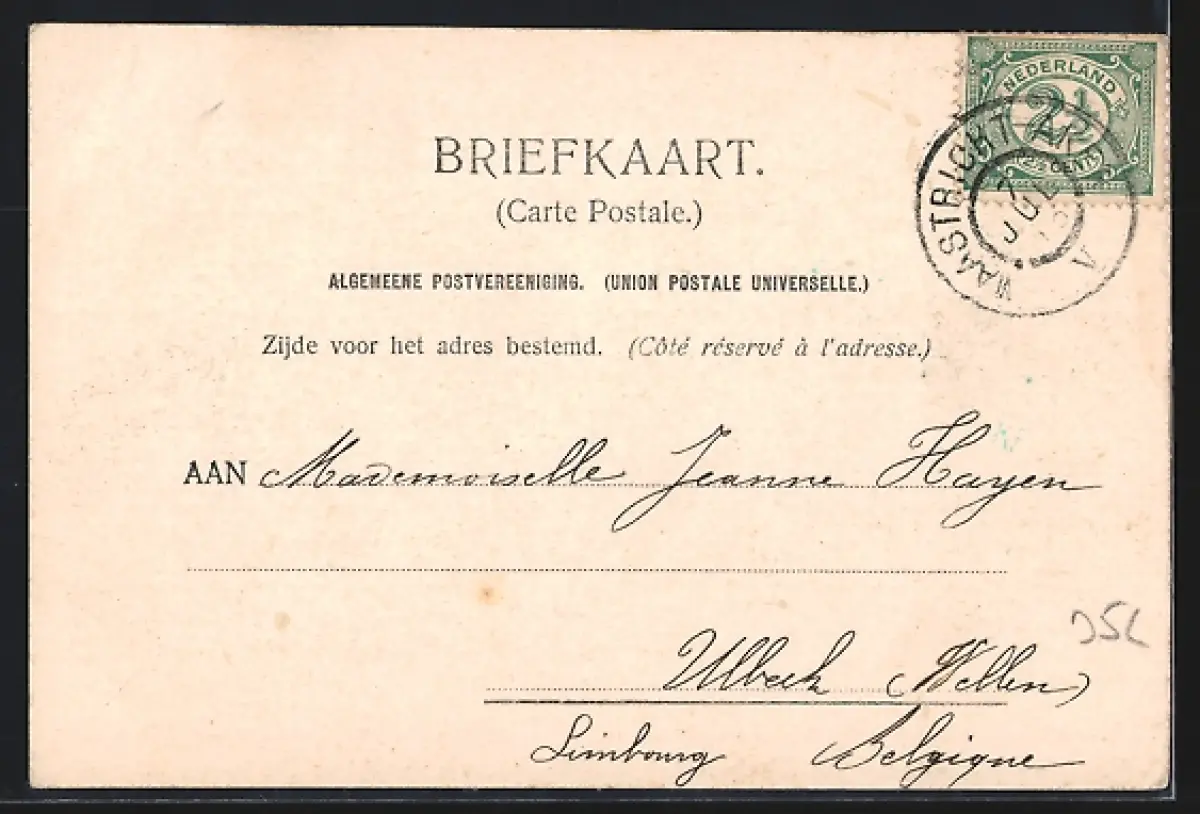 NEDERLAND
2½
(2½ CENT)
MAASTRICHT
JUL
BRIEFKAART.
(Carte Postale.)
ALGEMEENE POSTVEREENIGING. (UNION POSTALE UNIVERSELLE.)
Zijde voor het adres bestemd. (Côté réservé à l'adresse.)
AAN Mademoiselle Jeanne Hayen
Ulbeek (Wellen)
Limbourg Belgique